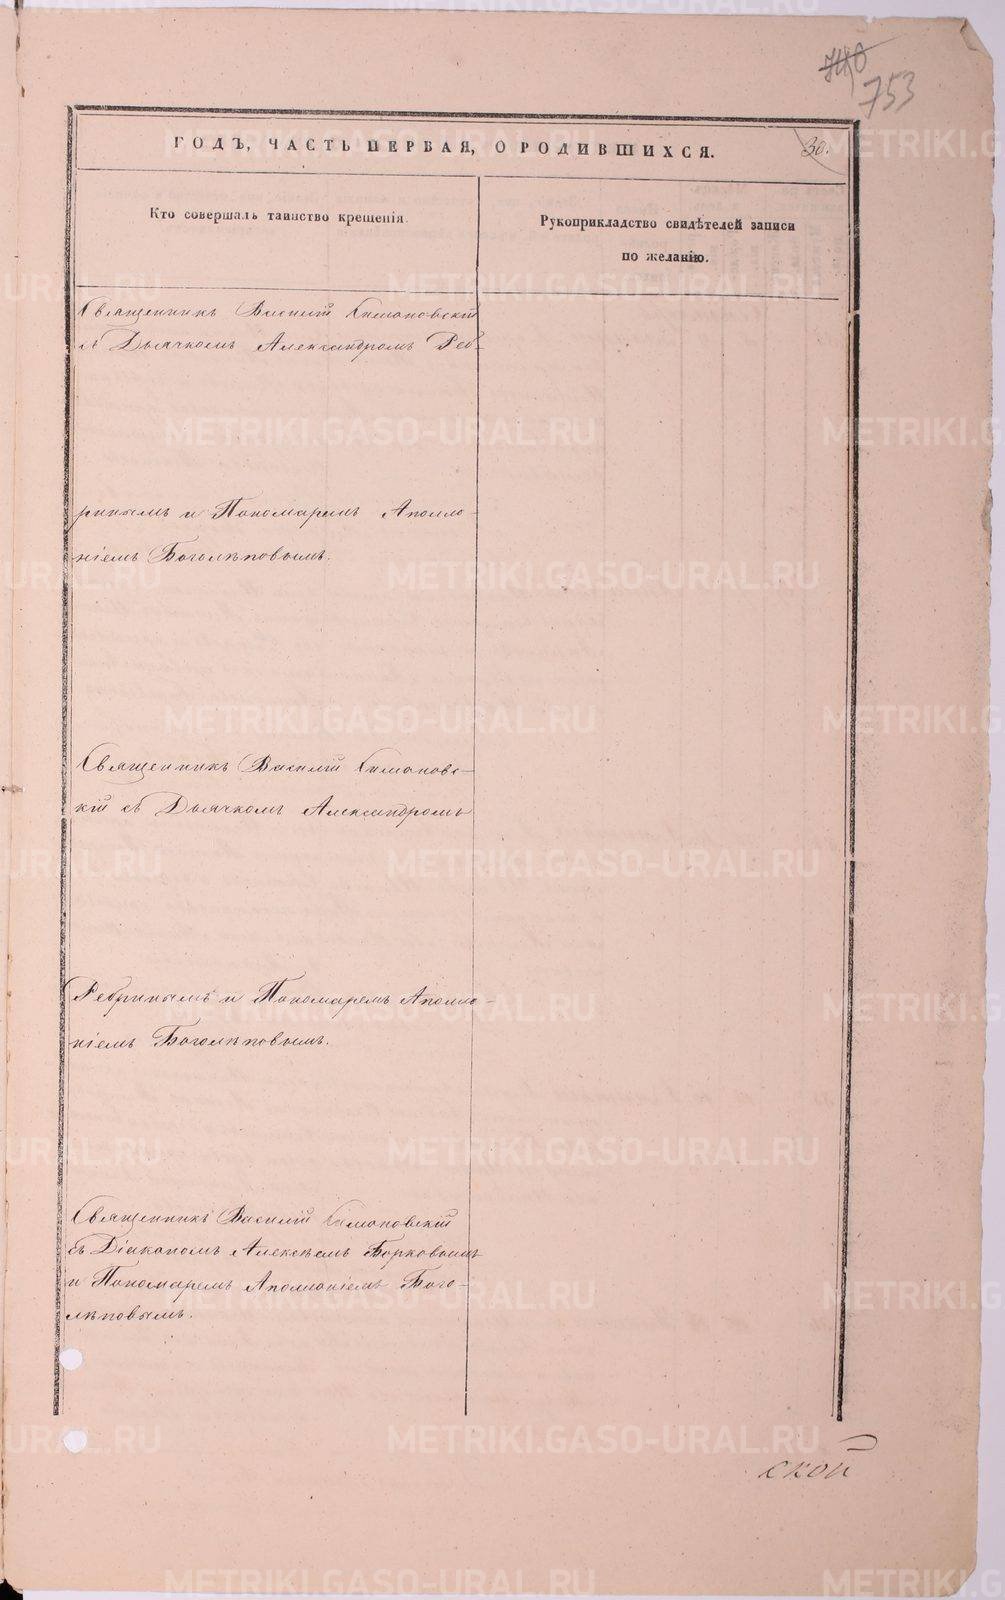 740
753
ГОДЪ, ЧАСТЬ ПЕРВАЯ, О РОДИВШИХСЯ.
30.
Кто совершалъ таинство крещенія.
Рукоприкладство свидѣтелей записи
по желанію.
Священникъ Василій Симановскій
съ Дьячкомъ Александромъ Реб-
ринымъ и Пономаремъ Аполло-
ніемъ Боголѣповымъ.
Священникъ Василій Симановс-
кій съ Дьячкомъ Александромъ
Ребринымъ и Пономаремъ Аполло-
ніемъ Боголѣповымъ.
Священникъ Василій Симановскій
съ Діакономъ Алексѣемъ Борковымъ
и Пономаремъ Аполлоніемъ Бого-
лѣповымъ.
ской
METRIKI.GASO-URAL.RU